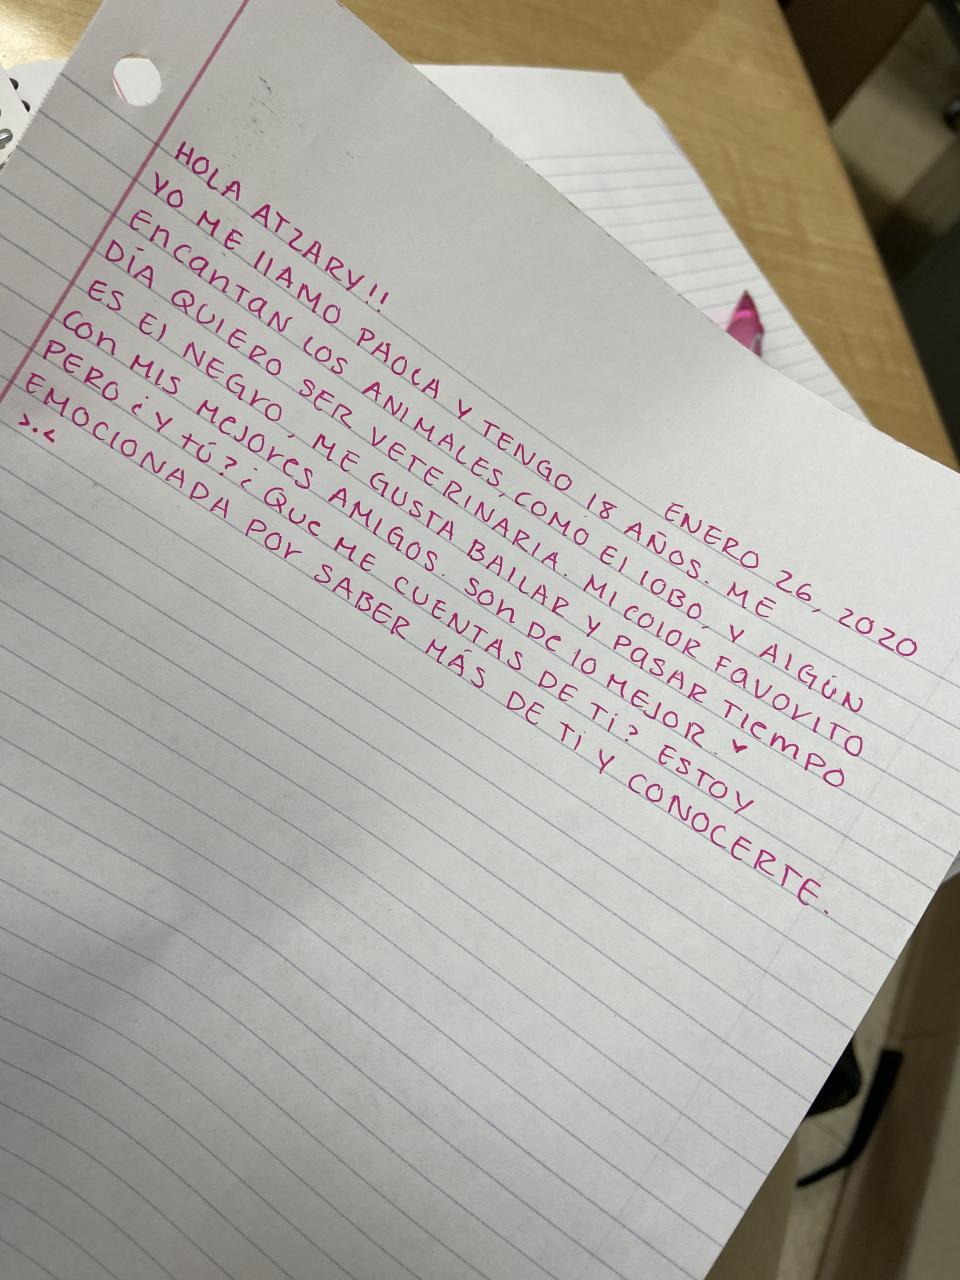 ENERO 26, 2020
HOLA ATZARY!!
YO ME llAMO PAOLA Y TENGO 18 AÑOS. ME
ENCANTAN LOS ANIMALES, COMO El lOBO, Y ALGÚN
DÍA QUIERO SER VETERINARIA. MI COlOR FAVORITO
ES El NEGrO, ME GUSTA BAILAR Y PASAR TIEMPO
CON MIS MEJORES AMIGOS. SON DE lO MEJOR. ♥
PERO ¿Y TÚ? ¿QUE ME CUENTAS DE Ti? ESTOY
EMOCIONADA POR SABER MÁS DE Ti Y CONOCERTE.
>.<